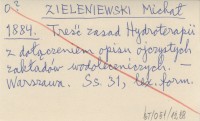 ZIELENIEWSKI Michał
1884. Treść zasad Hydroterapii
z dołączeniem opisu ojczystych
zakładów wodoleczniczych. —
Warszawa. Ss. 31, lex. form.